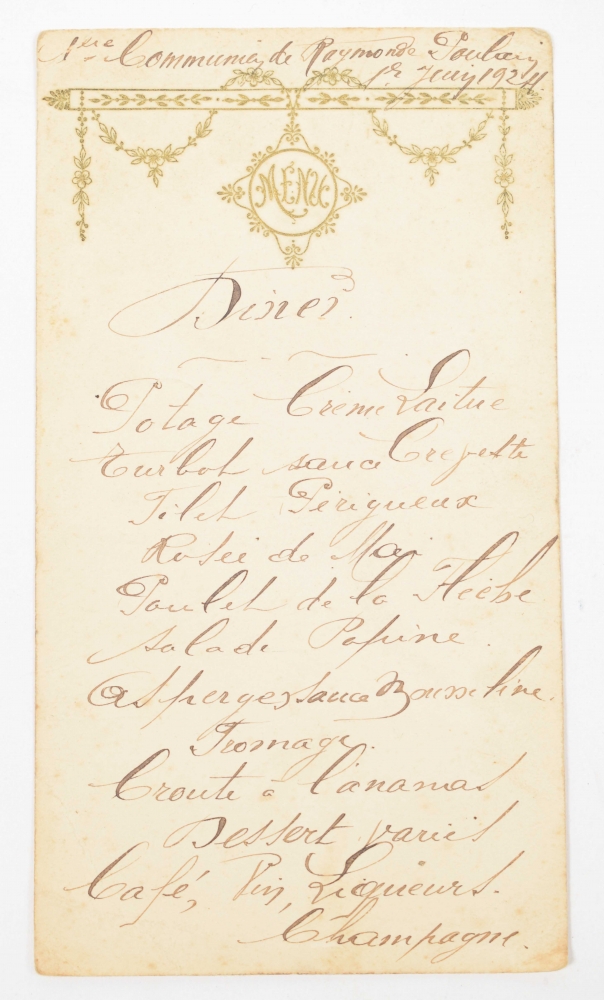 1ère Communion de Raymonde
1er Juin 1924
MENU
Diner.
Potage Crème Laitue
Turbot sauce Crevette
Filet Périgueux
Rosée de Mai
Poulet de la Flèche
Salade Popine.
Asperges sauce Mousseline.
Fromage.
Croute à l'ananas
Dessert variés
Café, Vin, Liqueurs.
Champagne.